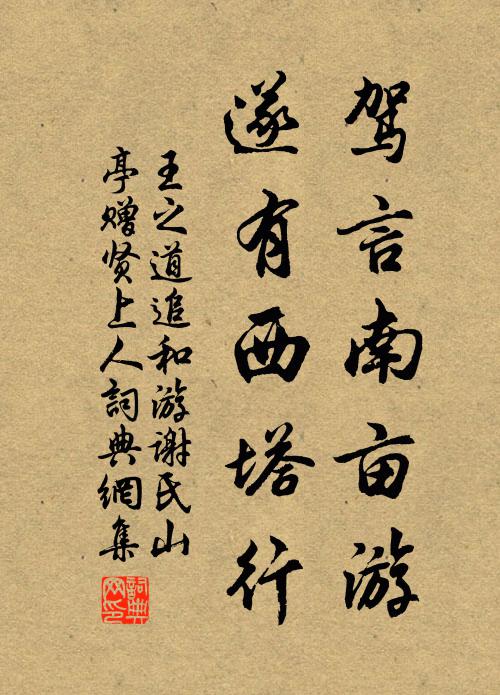 驾言南亩游
遂有西塔行
王之道追和游谢氏山
亭赠贤上人詞典網集
詞典网印